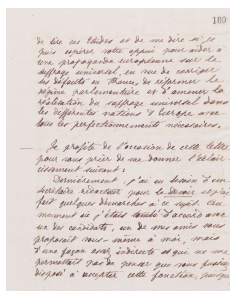 180
de lire ces Etudes et de me dire si je
puis espérer votre appui pour aider à
une propagande européenne sur le
suffrage universel, en vue de corriger
ses défauts en France, de réformer le
régime parlementaire et d'amener la
réalisation du suffrage universel dans
les différentes nations d'Europe avec
tous les perfectionnements nécessaires.
Je profite de l'occasion de cette lettre
pour vous prier de me donner l'éclair-
cissement suivant :
Dernièrement, j'ai eu besoin d'un
secrétaire rédacteur pour le Devoir et j'ai
fait quelques démarches à ce sujet. Au
moment où j'étais tombé d'accord avec
un des candidats, un de mes amis vous
proposait vous-même à moi, mais
d'une façon assez indirecte et qui ne me
permettait pas de penser que vous fussiez
disposé à accepter cette fonction, puisque